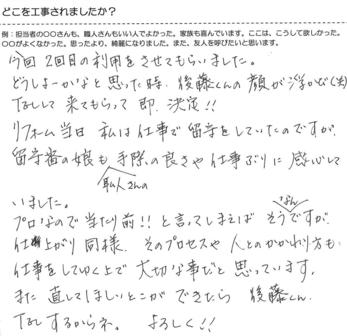 どこを工事されましたか?
例:担当者の○○さんも、職人さんもいい人でよかった。家族も喜んでいます。ここは、こうして欲しかった。
○○がよくなかった。思ったより、綺麗になりました。また、友人を呼びたいと思います。
今回2回目の利用をさせてもらいました。
どうしよーかなと思った時 後藤くんの顔が浮かび(笑)
TELして来てもらって即決定!!
リフォーム当日 私は仕事で留守をしていたのですが、
留守番の娘も 手際の良さや仕事ぶりに感心して
職人さんの
いました。
プロなので当たり前!!と言ってしまえば そうですが
なん
仕上がり同様 そのプロセスや 人とのかかわり方も
仕事をしてゆく上で 大切な事だと思っています。
また 直してほしいとこができたら 後藤くん
TELするからネ。 よろしく!!